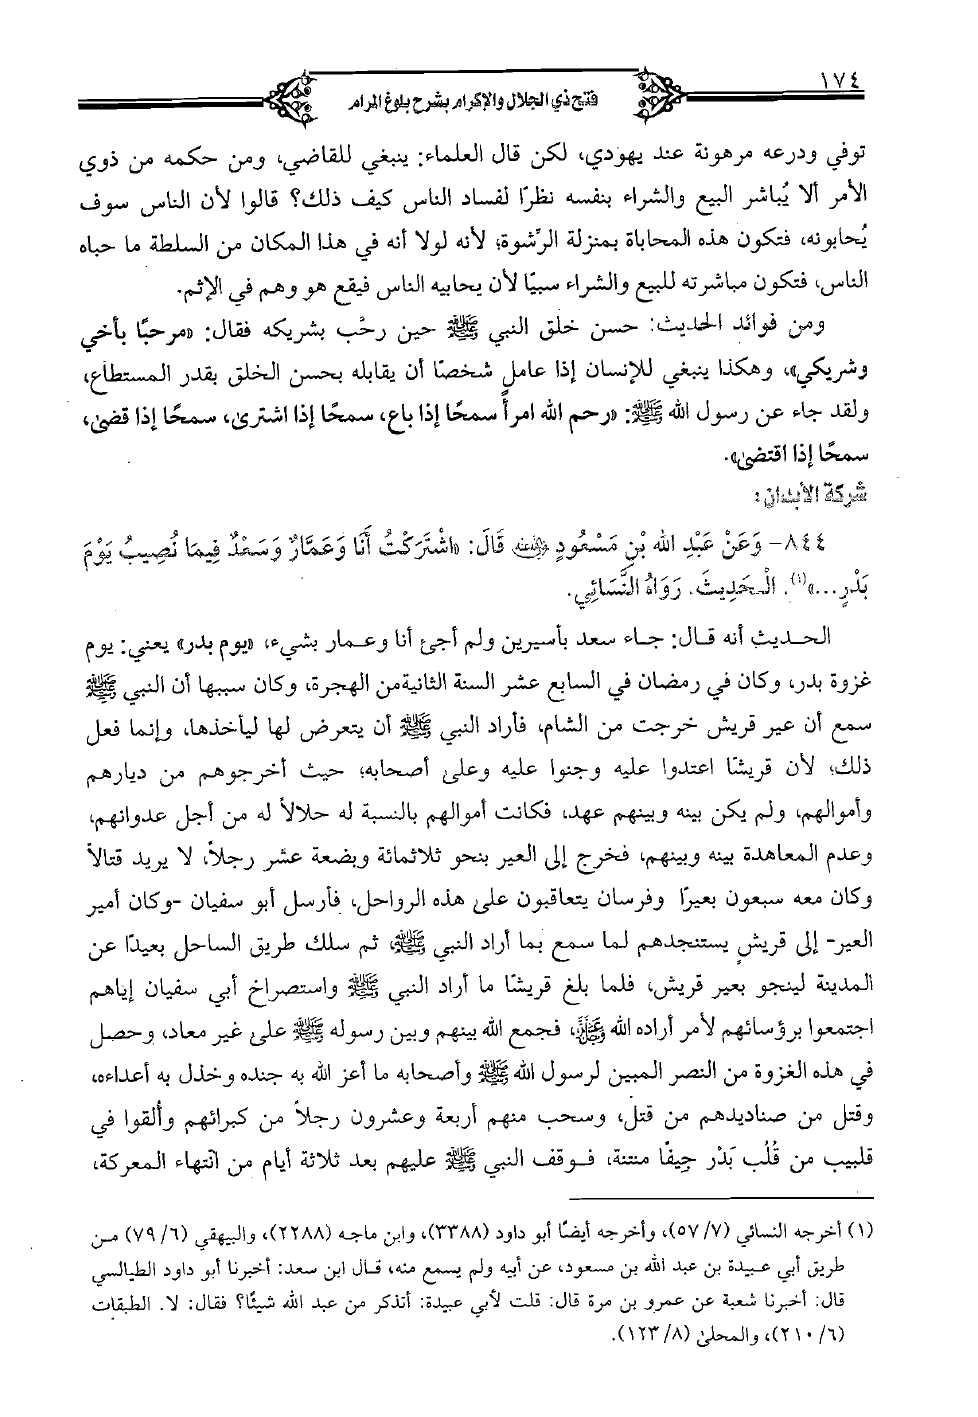 ١٧٤
فتح ذي الجلال والإكرام بشرح بلوغ المرام
توفي ودرعه مرهونة عند يهودي، لكن قال العلماء: ينبغي للقاضي، ومن حكمه من ذوي
الأمر ألا يُباشر البيع والشراء بنفسه نظرًا لفساد الناس كيف ذلك؟ قالوا لأن الناس سوف
يُحابونه، فتكون هذه المحاباة بمنزلة الرِّشوة؛ لأنه لولا أنه في هذا المكان من السلطة ما حباه
الناس، فتكون مباشرته للبيع والشراء سببًا لأن يحابيه الناس فيقع هو وهم في الإثم.
ومن فوائد الحديث: حسن خلق النبي ﷺ حين رحَّب بشريكه فقال: «مرحبًا بأخي
وشريكي»، وهكذا ينبغي للإنسان إذا عامل شخصًا أن يقابله بحسن الخلق بقدر المستطاع،
ولقد جاء عن رسول الله ﷺ: «رحم الله امرأً سمحًا إذا باع، سمحًا إذا اشترى، سمحًا إذا قضى،
سمحًا إذا اقتضى».
شركة الأبدان:
٨٤٤- وَعَنْ عَبْدِ الله بْنِ مَسْعُودٍ رضي الله عنه قَالَ: «اشْتَرَكْتُ أَنَا وَعَمَّارٌ وَسَعْدٌ فِيمَا نُصِيبُ يَوْمَ
بَدْرٍ...»(١). الْحَدِيثَ. رَوَاهُ النَّسَائِي.
الحديث أنه قال: جاء سعد بأسيرين ولم أجئ أنا وعمار بشيء، «يوم بدر» يعني: يوم
غزوة بدر، وكان في رمضان في السابع عشر السنة الثانية من الهجرة، وكان سببها أن النبي ﷺ
سمع أن عير قريش خرجت من الشام، فأراد النبي ﷺ أن يتعرض لها ليأخذها، وإنما فعل
ذلك؛ لأن قريشًا اعتدوا عليه وجنوا عليه وعلى أصحابه؛ حيث أخرجوهم من ديارهم
وأموالهم، ولم يكن بينه وبينهم عهد، فكانت أموالهم بالنسبة له حلالاً له من أجل عدوانهم،
وعدم المعاهدة بينه وبينهم، فخرج إلى العير بنحو ثلاثمائة وبضعة عشر رجلاً، لا يريد قتالاً
وكان معه سبعون بعيرًا وفرسان يتعاقبون على هذه الرواحل، فأرسل أبو سفيان -وكان أمير
العير- إلى قريشٍ يستنجدهم لما سمع بما أراد النبي ﷺ، ثم سلك طريق الساحل بعيدًا عن
المدينة لينجو بعير قريش، فلما بلغ قريشًا ما أراد النبي ﷺ واستصراخ أبي سفيان إياهم
اجتمعوا برؤسائهم لأمر أراده الله عز وجل، فجمع الله بينهم وبين رسوله ﷺ على غير معاد، وحصل
في هذه الغزوة من النصر المبين لرسول الله ﷺ وأصحابه ما أعز الله به جنده وخذل به أعداءه،
وقتل من صناديدهم من قتل، وسحب منهم أربعة وعشرون رجلاً من كبرائهم وأُلقوا في
قليب من قُلُب بَدْر جِيفًا منتنة، فوقف النبي ﷺ عليهم بعد ثلاثة أيام من انتهاء المعركة،
(١) أخرجه النسائي (٥٧/٧)، وأخرجه أيضًا أبو داود (٣٣٨٨)، وابن ماجه (٢٢٨٨)، والبيهقي (٧٩/٦) من
طريق أبي عبيدة بن عبد الله بن مسعود، عن أبيه ولم يسمع منه، قال ابن سعد: أخبرنا أبو داود الطيالسي
قال: أخبرنا شعبة عن عمرو بن مرة قال: قلت لأبي عبيدة: أتذكر من عبد الله شيئًا؟ فقال: لا. الطبقات
(٢١٠/٦)، والمحلى (١٢٣/٨).